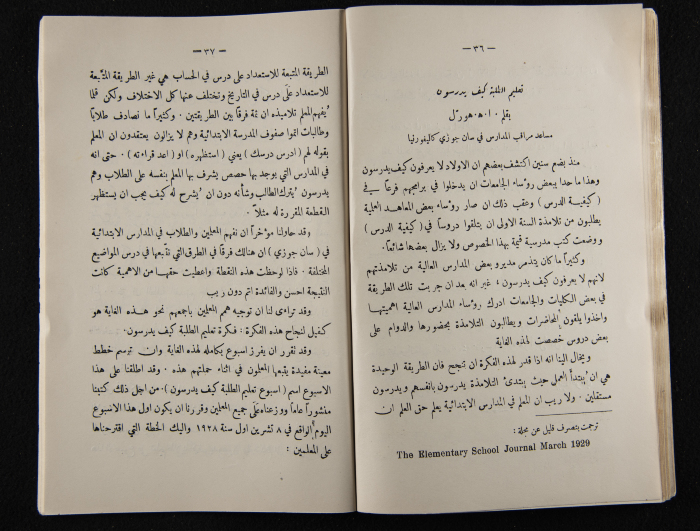 — ٣٦ —
تعليم الطلبة كيف يدرسون
بقلم ٠ ا٠هـ٠هورل
مساعد مراقب المدارس في سان جوزي كاليفورنيا
منذ بضع سنين اكتشف بعضهم ان الاولاد لا يعرفون كيف يدرسون
وهذا ما حدا ببعض رؤساء الجامعات ان يدخلوا في برامجهم فرعاً في
( كيفية الدرس ) وعقب ذلك ان صار رؤساء بعض المعاهد العلمية
يطلبون من تلامذة السنة الاولى ان يتلقوا دروساً في ( كيفية الدرس )
ووضعت كتب مدرسية قيمة بهذا الخصوص ولا يزال بعضها شائعاً.
وكثيراً ما كان يتذمر مديرو بعض المدارس العالية من تلامذتهم
لانهم لا يعرفون كيف يدرسون ، غير انه بعد ان جربت تلك الطريقة
في بعض الكليات والجامعات ادرك رؤساء المدارس العالية اهميتها
واخذوا يلقون المحاضرات ويطالبون التلامذة بحضورها والدوام على
بعض دروس خصصت لهذه الغاية
ويخال الينا انه اذا قدر لهذه الفكرة ان تنجح فان الطريقة الوحيدة
هي ان يبتدأ العمل حيث يبتدىء التلامذة يدرسون بانفسهم ويدرسون
مستقلين . ولا ريب ان المعلم في المدارس الابتدائية يعلم حق العلم ان
ترجمت بتصرف قليل عن مجلة :
The Elementary School Journal March 1929
— ٣٧ —
الطريقة المتبعة للاستعداد على درس في الحساب هي غير الطريقة المتبعة
للاستعداد على درس في التاريخ وتختلف عنها كل الاختلاف ولكن قلما
يُفهم المعلم تلاميذه ان ثمة فرقاً بين الطريقتين . وكثيراً ما نصادف طلاباً
وطالبات اتموا صفوف المدرسة الابتدائية وهم لا يزالون يعتقدون ان المعلم
بقوله لهم ( ادرس درسك ) يعني ( استظهره ) او ( اعد قراءته ) . حتى انه
في المدارس التي يوجد بها حصص يشرف بها المعلم بنفسه على الطلاب وهم
يدرسون يُترك الطالب وشأنه دون ان يُشرح له كيف يجب ان يستظهر
القطعة المقررة له مثلاً .
وقد حاولنا مؤخراً ان نفهم المعلمين والطلاب في المدارس الابتدائية
في ( سان جوزي ) ان هنالك فرقاً في الطرق التي نتبعها في درس المواضيع
المختلفة . فاذا لوحظت هذه النقطة واعطيت حقها من الاهمية كانت
النتيجة احسن والفائدة اتم دون ريب
وقد تراءى لنا ان توجيه همم المعلمين باجمعهم نحو هذه الغاية هو
كفيل لنجاح هذه الفكرة : فكرة تعليم الطلبة كيف يدرسون.
وقد تقرر ان يفرز اسبوع بكامله لهذه الغاية وان ترسم خطط
معينة مفيدة يتبعها المعلمون في اثناء حملتهم هذه . وقد اطلقنا على هذا
الاسبوع اسم ( اسبوع تعليم الطلبة كيف يدرسون ). من اجل ذلك كتبنا
منشوراً عاماً ووزعناه على جميع المعلمين وقررنا ان يكون اول هذا الاسبوع
اليوم الواقع في ٨ تشرين اول سنة ١٩٢٨ واليك الخطة التي اقترحناها
على المعلمين :